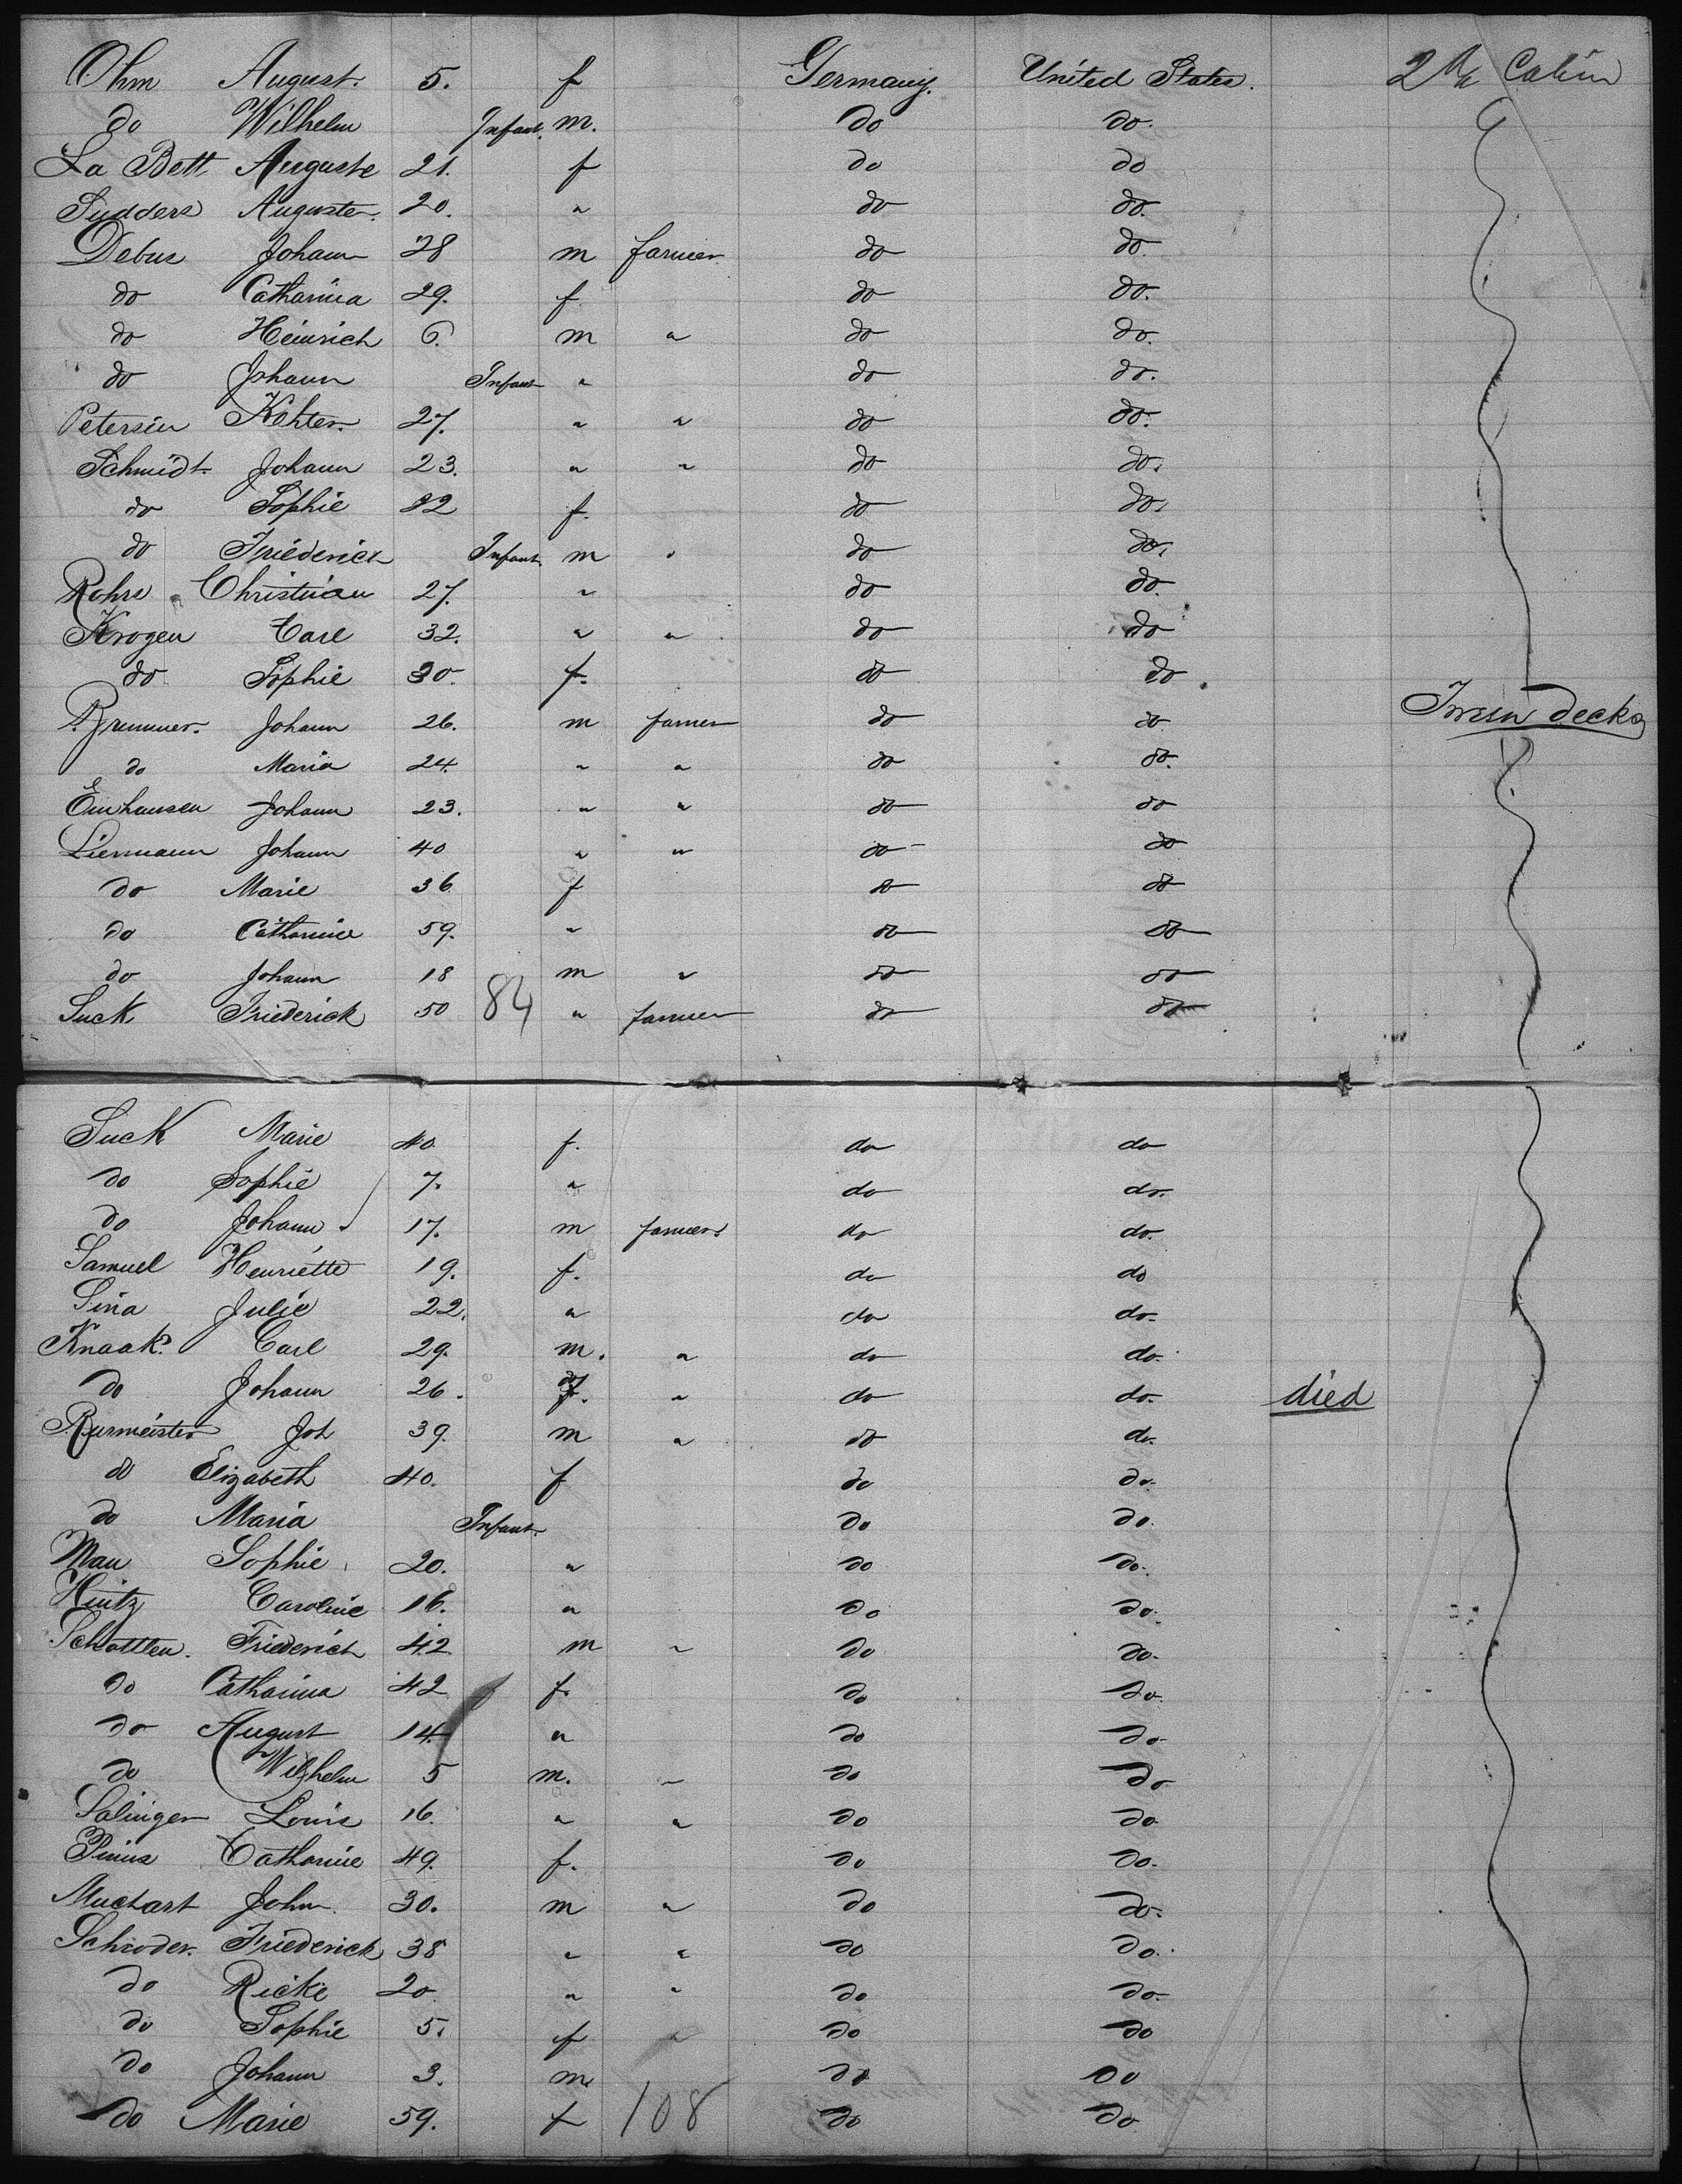 Ohm August. 5. f Germany. United States. 2de Cabin
do Wilhelm Infant. m. do do.
La Bett Auguste 21. f do do
Sudders Auguste. 20. " do do.
Debus Johann 28 m farmer do do.
do Catharina 29. f do do.
do Heinrich 6. m " do do.
do Johann Infant " do do.
Petersen 27. " " do do.
Schmidt. Johann 23. " " do do.
do Sophie 22 f. do do.
do Friederick Infant m " do do.
Rohrs Christian 27. " do do.
Krogen Carl 32. " " do do
do Sophie 30. f. do do
Brummer. Johann 26. m farmer do do. Tween decks
do Maria 24. " " do do.
Einhausen Johann 23. " " do do
Liermann Johann 40 " " do do
do Marie 36 f do do
do Catharine 59. " do do
do Johann 18 m " do do
Suck Friederick 50 84 " farmer do do
Suck Marie 40. f. do do
do Sophie 7. " do do.
do Johann 17. m farmer do do.
Samuel Henriette 19. f. do do
Sina Julie 22. " do do.
Knaak Carl 29. m. " do do.
do Johann 26. f. " do do. died
Burmeister Joh 39. m " do do.
do Elizabeth 40. f do do.
do Maria Infant do do.
Mau Sophie 20. " do do.
Hintz Caroline 16. " do do.
Schottlen. Friederich 42 m " do do.
do Catharina 42 f. do do.
do August 14. " do do
do Wilhelm 5 m. " do do
Salinger Louis 16. " " do do
Catharine 49. f. do do.
Muchart John 30. m " do do.
Schroder. Friederick 38 " " do do.
do Ricke 20 " " do do.
do Sophie 5. f " do do
do Johann 3. m. do do
do Marie 59. f 108 do do